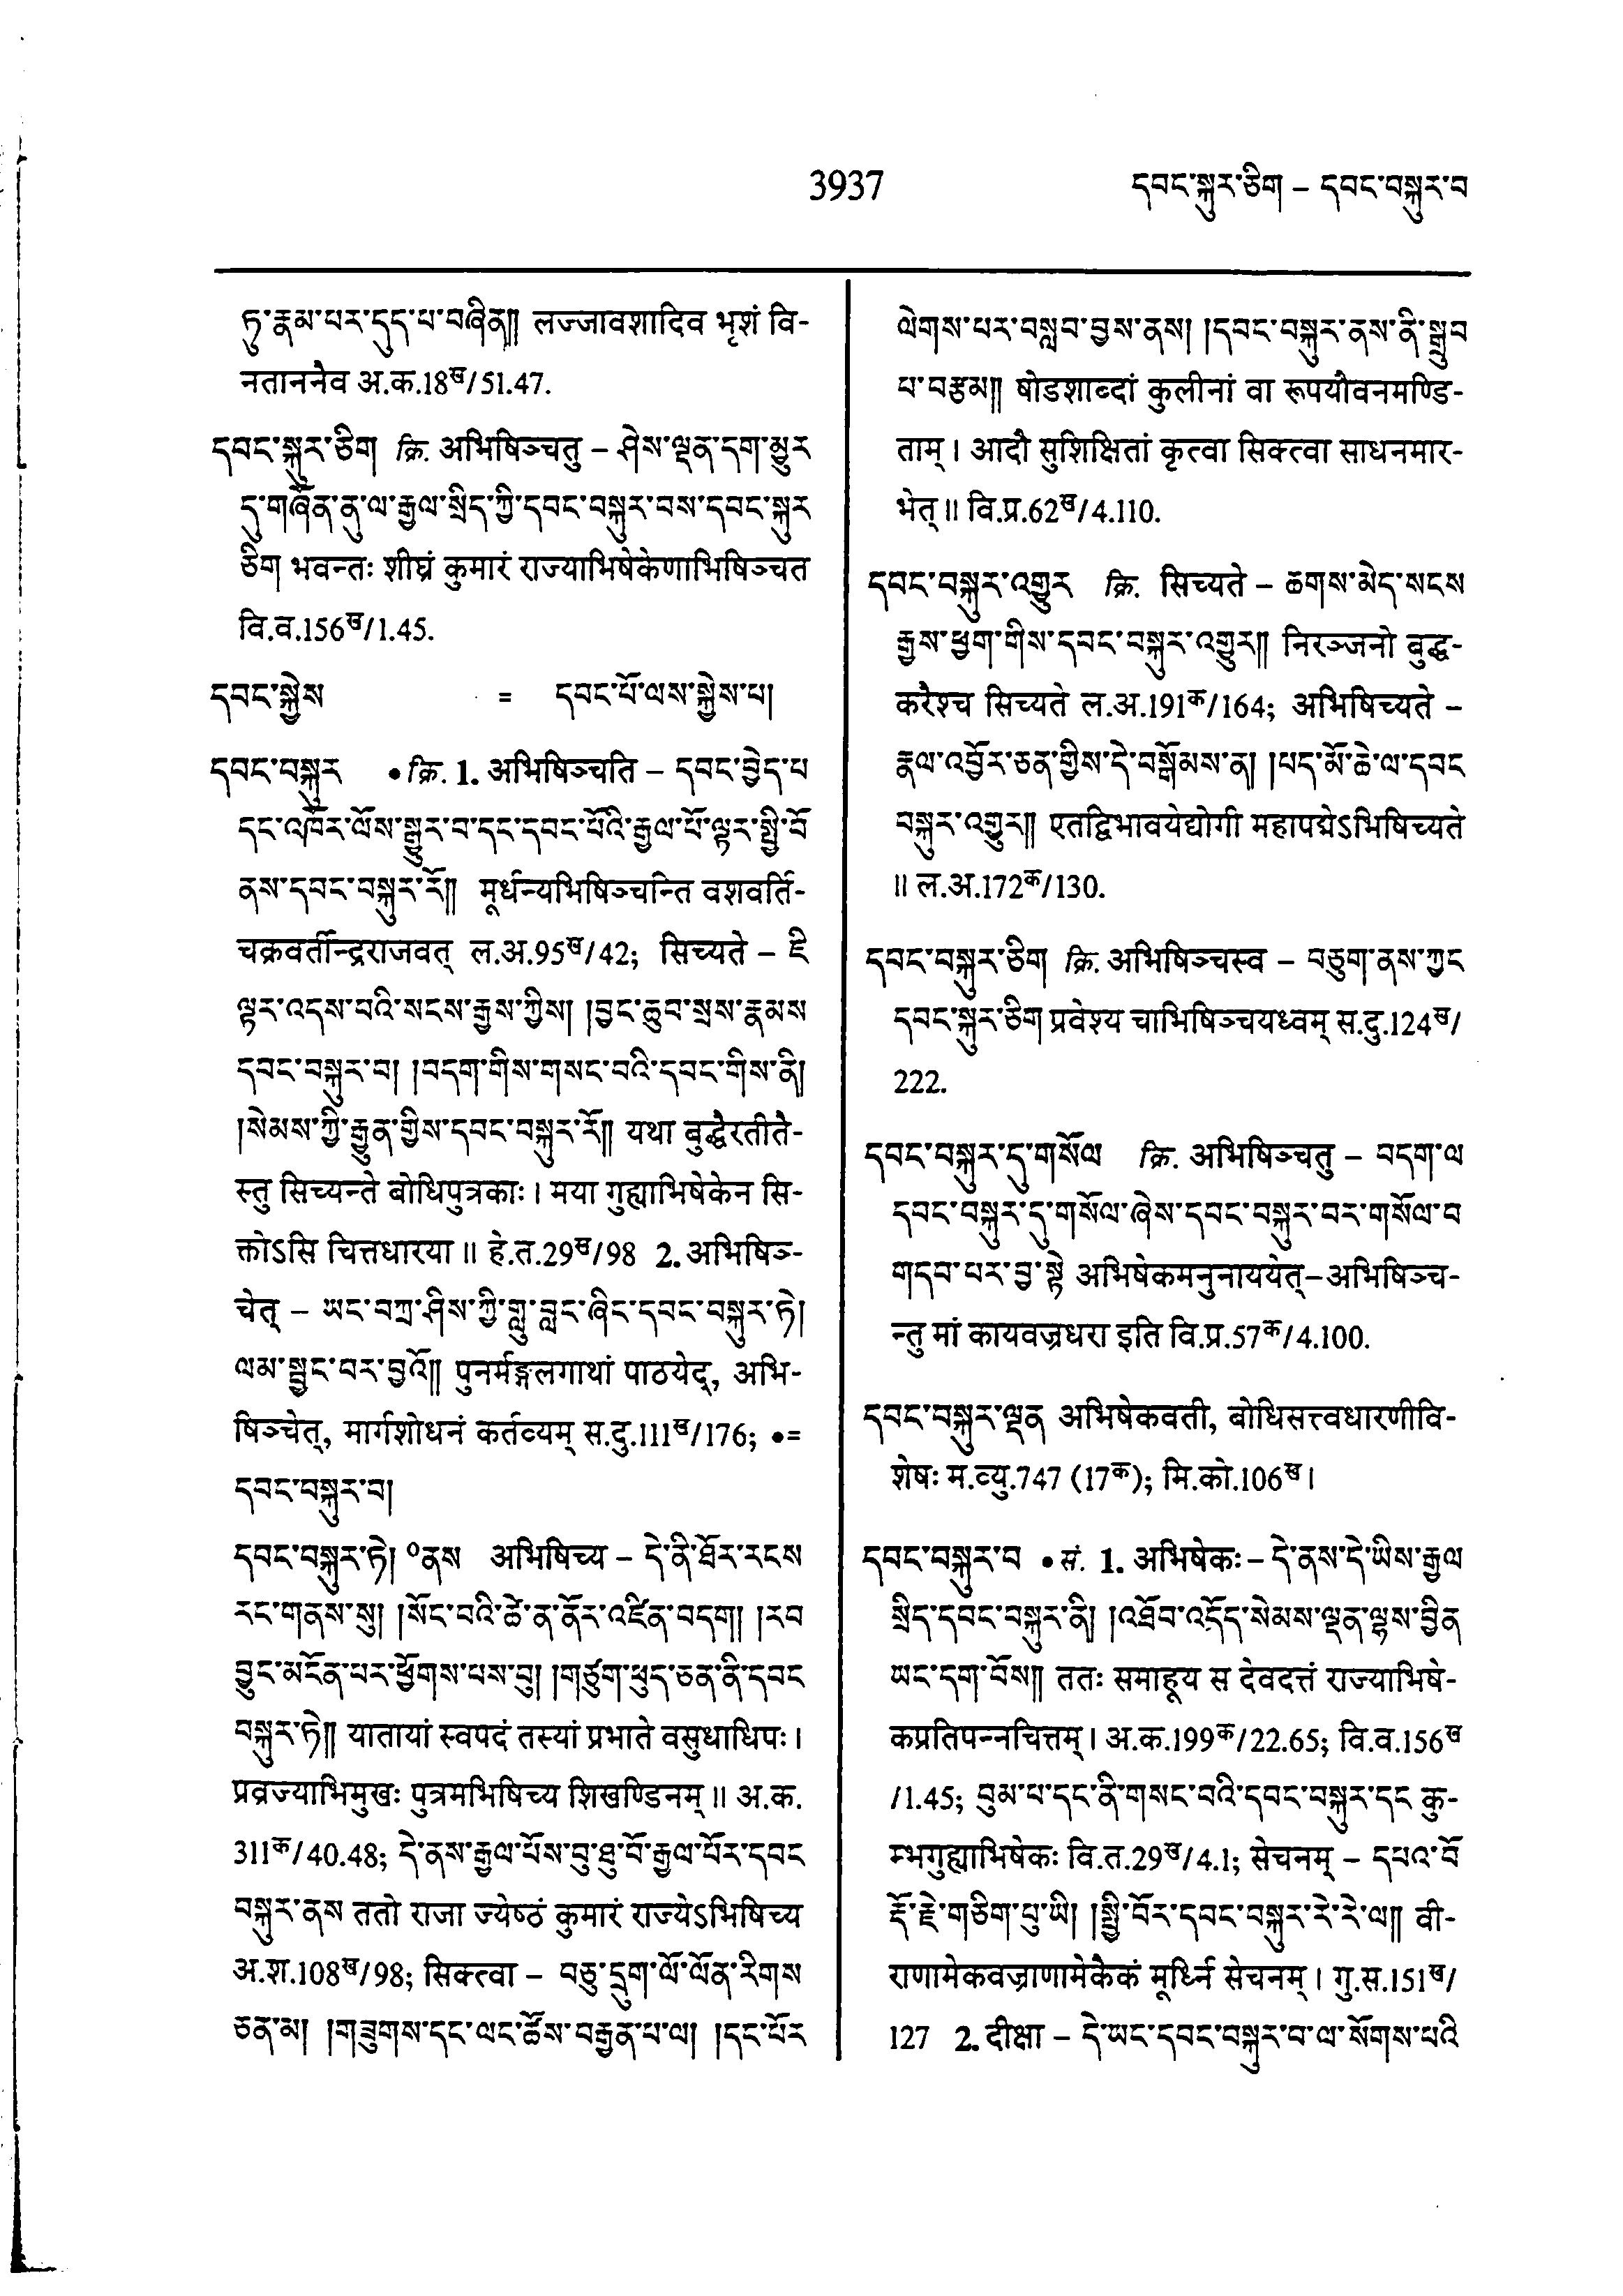 3937
དབང་སྐུར་ཅིག – དབང་བསྐུར་བ
ཏུ་རྣམ་པར་དུད་པ་བཞིན།། लज्जावशादिव भृशं वि-
नताननैव अ.क.18ख/51.47.
དབང་སྐུར་ཅིག क्रि. अभिषिञ्चतु – ཤེས་ལྡན་དག་མྱུར
དུ་གཞོན་ནུ་ལ་རྒྱལ་སྲིད་ཀྱི་དབང་བསྐུར་བས་དབང་སྐུར
ཅིག भवन्तः शीघ्रं कुमारं राज्याभिषेकेणाभिषिञ्चत
वि.व.156ख/1.45.
དབང་སྐྱེས = དབང་པོ་ལས་སྐྱེས་པ།
དབང་བསྐུར • क्रि. 1. अभिषिञ्चति – དབང་བྱེད་པ
དང་འཁོར་ལོས་སྒྱུར་བ་དང་དབང་པོའི་རྒྱལ་པོ་ལྟར་སྤྱི་བོ
ནས་དབང་བསྐུར་རོ།། मूर्धन्यभिषिञ्चन्ति वशवर्ति-
चक्रवर्तीन्द्रराजवत् ल.अ.95ख/42; सिच्यते – ཇི
ལྟར་འདས་པའི་སངས་རྒྱས་ཀྱིས། །བྱང་ཆུབ་སྲས་རྣམས
དབང་བསྐུར་བ། །བདག་གིས་གསང་བའི་དབང་གིས་ནི།
།སེམས་ཀྱི་རྒྱུན་གྱིས་དབང་བསྐུར་རོ།། यथा बुद्धैरतीतै-
स्तु सिच्यन्ते बोधिपुत्रकाः। मया गुह्याभिषेकेन सि-
क्तोऽसि चित्तधारया॥ हे.त.29ख/98 2. अभिषिञ्-
चेत् – ཡང་བཀྲ་ཤིས་ཀྱི་གླུ་བླང་ཞིང་དབང་བསྐུར་ཏེ།
ལམ་སྦྱང་བར་བྱའོ།། पुनर्मङ्गलगाथां पाठयेद्, अभि-
षिञ्चेत्, मार्गशोधनं कर्तव्यम् स.दु.111ख/176; •=
དབང་བསྐུར་བ།
དབང་བསྐུར་ཏེ། ॰ནས अभिषिच्य – དེ་ནི་ཐོར་རངས
རང་གནས་སུ། །སོང་བའི་ཚེ་ན་ནོར་འཛིན་བདག། །རབ
བྱུང་མངོན་པར་ཕྱོགས་པས་བུ། །གཙུག་ཕུད་ཅན་ནི་དབང
བསྐུར་ཏེ།། यातायां स्वपदं तस्यां प्रभाते वसुधाधिपः।
प्रव्रज्याभिमुखः पुत्रमभिषिच्य शिखण्डिनम्॥ अ.क.
311क/40.48; དེ་ནས་རྒྱལ་པོས་བུ་ཐུ་བོ་རྒྱལ་པོར་དབང
བསྐུར་ནས ततो राजा ज्येष्ठं कुमारं राज्येऽभिषिच्य
अ.श.108ख/98; सिक्त्वा – བཅུ་དྲུག་ལོ་ལོན་རིགས
ཅན་མ། །གཟུགས་དང་ལང་ཚོས་བརྒྱན་པ་ལ། །དང་པོར
ལེགས་པར་བསླབ་བྱས་ནས། །དབང་བསྐུར་ནས་ནི་སྒྲུབ
པ་བརྩམ།། षोडशाब्दां कुलीनां वा रूपयौवनमण्डि-
ताम्। आदौ सुशिक्षितां कृत्वा सिक्त्वा साधनमार-
भेत्॥ वि.प्र.62ख/4.110.
དབང་བསྐུར་འགྱུར क्रि. सिच्यते – ཆགས་མེད་སངས
རྒྱས་ཕྱག་གིས་དབང་བསྐུར་འགྱུར།། निरञ्जनो बुद्ध-
करैश्च सिच्यते ल.अ.191क/164; अभिषिच्यते –
རྣལ་འབྱོར་ཅན་གྱིས་དེ་བསྒོམས་ན། །པད་མོ་ཆེ་ལ་དབང
བསྐུར་འགྱུར།། एतद्विभावयेद्योगी महापद्मेऽभिषिच्यते
॥ ल.अ.172क/130.
དབང་བསྐུར་ཅིག क्रि. अभिषिञ्चस्व – བཅུག་ནས་ཀྱང
དབང་སྐུར་ཅིག प्रवेश्य चाभिषिञ्चयध्वम् स.दु.124ख/
222.
དབང་བསྐུར་དུ་གསོལ क्रि. अभिषिञ्चतु – བདག་ལ
དབང་བསྐུར་དུ་གསོལ་ཞེས་དབང་བསྐུར་བར་གསོལ་བ
གདབ་པར་བྱ་སྟེ अभिषेकमनुनाययेत्–अभिषिञ्च-
न्तु मां कायवज्रधरा इति वि.प्र.57क/4.100.
དབང་བསྐུར་ལྡན अभिषेकवती, बोधिसत्त्वधारणीवि-
शेषः म.व्यु.747 (17क); मि.को.106ख।
དབང་བསྐུར་བ • सं. 1. अभिषेकः – དེ་ནས་དེ་ཡིས་རྒྱལ
སྲིད་དབང་བསྐུར་ནི། །འཐོབ་འདོད་སེམས་ལྡན་ལྷས་བྱིན
ཡང་དག་བོས།། ततः समाहूय स देवदत्तं राज्याभिषे-
कप्रतिपन्नचित्तम्। अ.क.199क/22.65; वि.व.156ख
/1.45; བུམ་པ་དང་ནི་གསང་བའི་དབང་བསྐུར་དང कु-
म्भगुह्याभिषेकः वि.त.29ख/4.1; सेचनम् – དཔའ་བོ
རྡོ་རྗེ་གཅིག་པུ་ཡི། །སྤྱི་བོར་དབང་བསྐུར་རེ་རེ་ལ།། वी-
राणामेकवज्राणामेकैकं मूर्ध्नि सेचनम्। गु.स.151ख/
127 2. दीक्षा – དེ་ཡང་དབང་བསྐུར་བ་ལ་སོགས་པའི